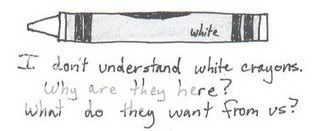 white
I don't understand white crayons.
Why are they here?
What do they want from us?